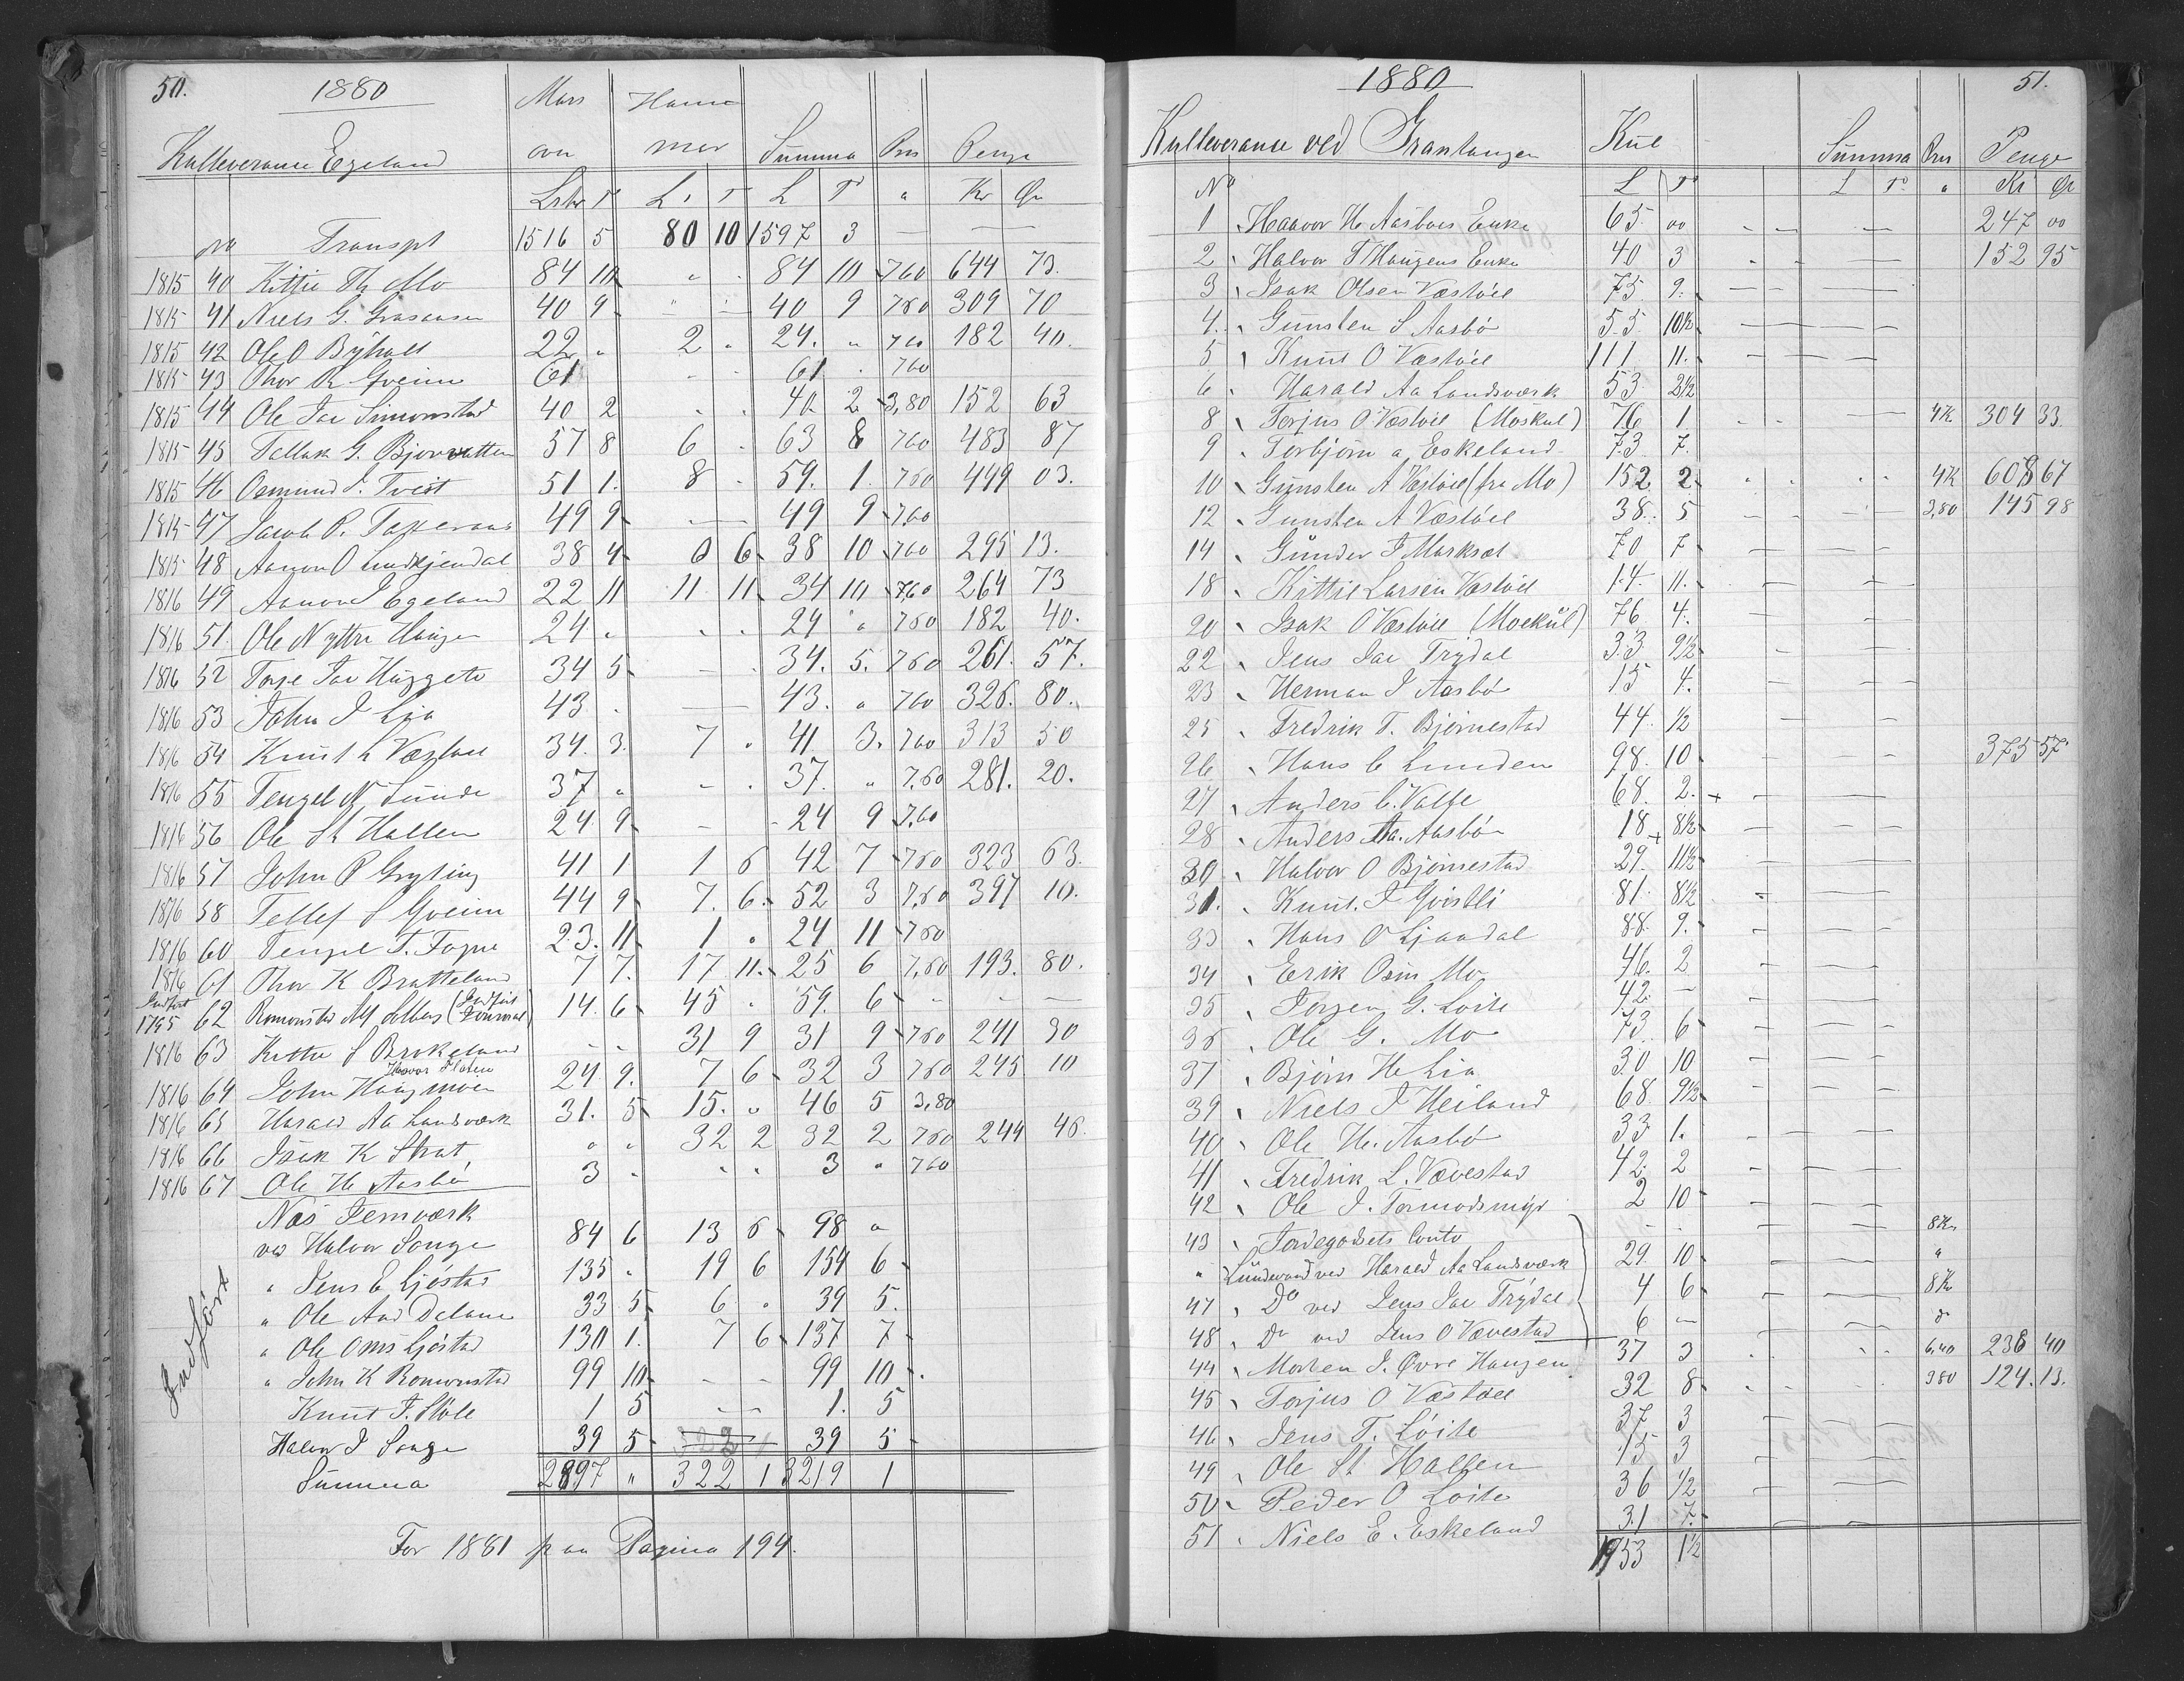 50. 1880 Mas Ham
Kulleverance Egeland ovn mer Summa Pris Penge
Lstr T L T L T " Kr Ør
No Transpt 1516 5 80 10 1597 3 — —
1815 40 Kittil Th Mo 84 10 " . 84 10 760 644 73.
1815 41 Niels G. 40 9 " — 40 9 760 309 70
1815 42 Ole O Bijholt 22 " 2 " 24. " 760 182 40.
1815 43 Thor K Gveim 61 - - 61 . 760
1815 44 Ole Jac Simonstad 40 2 . . 40 2 3,80 152 63
1815 45 Tellak G. Bjorvatten 57 8 6 . 63 8 760 483 87
1815 46 Osmund J. Tveit 51 1. 8 . 59. 1. 760 449 03.
1815 47 Jacob P. 49 9 — 49 9 760
1815 48 Aanon O 38 4 0 6 38 10 760 295 13.
1816 49 Aanon J Egeland 22 11 11 11 34 10 760 264 73
1816 51. Ole N yttre Haugen 24 " . . 24 " 760 182 40.
1816 52 Tarje Jac Huggete 34 5 — . 34. 5. 760 261. 57.
1816 53 John J Lia 43 . — 43. " 760 326. 80.
1816 54 Knut L Væstøel 34. 3. 7 . 41 3. 760 313 50
1816 55 Tengel N Sunde 37 " - . 37. " 7,60 281. 20.
1816 56 Ole St Hallen 24 9 - - 24 9 7,60
1816 57 John P Gryting 41 1 1 6 42 7 760 323 63.
1816 58 Tellef S Gveim 44 9 7. 6. 52 3 7,60 397 10.
1816 60 Tengel T. Fogne 23. 11 1 " 24 11 760
1816 61 Thor K Bratteland 7 7. 17 11. 25 6 7,60 193. 80.
Indført 1795 62 Romonstad (Indført Journal) 14. 6 45 " 59. 6 - - —
1816 63 Kittil S Brekeland - - 31 9 31 9 760 241 30
Haavor Flaten
1816 64 John Haugmoen 24 9. 7 6 32 3 760 245 10
1816 65 Harald Aa Landsværk 31. 5 15. " 46 5 3,80
1816 66 Isak K Strat " " 32 2 32 2 760 244 46.
1816 67 Ole H Aasbø 3 - . . 3 " 760
Næs Jernværk
ved Halvor Songe 84 6 13 6 98 "
" Jens E Ljøstad 135 " 19 6 154 6
" Ole And Dalane 33 5 6 " 39 5.
" Ole Oms Ljøstad 130 1. 7 6 137 7
" John K Romonstad 99 10 - - 99 10
Knut T. Støle 1 5 - - 1. 5
Halvor J Songe 39 5 39 5
Indført
Summa 2897 " 322 1 3219 1
For 1881 paa Pagina 194.
1880 51.
Kulleverance ved Grantangen Kul Summa Pris Penge
No L T L T " Kr Ør
1 Haavor H Aasbøes Enke 65 00 - - — 247 00
2 Halvor T Haugens Enke 40 3 - - — 152 95
3 Isak Olsen Væstøel 75 9. - — —
4. Gunsten S Aasbø 55. 10½ — — —
5 Knut O Væstøel 111 11. - — —
6 Harald Aa Landsværk 53 2½
8 Torjus O Væstøel (Moskul) 76 1. - - — 4K 304 33
9 Torbjørn a Eskeland 73 7.
10 Gunsten A Væstøel (fra Mo) 152 2 . . . . 4K 608 67
12 Gunsten A Væstøel 38. 5 - - — 3,80 145 98
14 Gunder T Marksæt 70 7 - — —
18 Kittil Larsen Væstøel 14 11. - — —
20 Isak O Væstøel (Moekul) 76 4. - — —
22 Jens Jac Trydal 33 9½ - — —
23 Herman J Aasbø 15 4. - — —
25 Fredrik T. Bjørnestad 44 ½ - — —
26 Hans C Lunden 98. 10 - - - 375 57
27 Anders C. Valle 68. 2. + - — —
28 Anders Aa. Aasbø 18 8½ — — —
30 Halvor O Bjørnestad 29. 11½ - — —
31. Knut. J Gvistli 81. 8½ -
33 Hans O Ljaadal 88. 9. - — —
34 Erik Osm Mo 46. 2 - — —
35 Jørgen G. Løite 42. — - — —
36 Ole G. Mo 73 6 - — —
37 Bjørn H Lia 30 10 - — —
39 Niels J Heiland 68. 9½ - — —
40 Ole H. Aasbø 33 1. - — —
41 Fredrik L. Vævestad 42. 2 - — —
42 Ole J. Tormodsmyr 2 10 - — —
43 Jordegodsets Conto - - - — — 8Kr
" ved Harald Aa Landsværk 29 10 - — — "
47 Do ved Jens Jac Trydal 4 6 - — — 8Kr
48 Do ved Jens O Vævestad 6 — "
44 Morten J. Øvre Haugen 37 3 . . . . 6,40 238 40
45 Torjus O Væstøel 32 8 - - . . 380 124. 13.
46 Jens T. Løite 37 3 - — —
49 Ole St Hallen 15 3 — — —
50 Peder O Løite 36 ½ - — —
51 Niels E. Eskeland 31 7. - — —
1953 1½